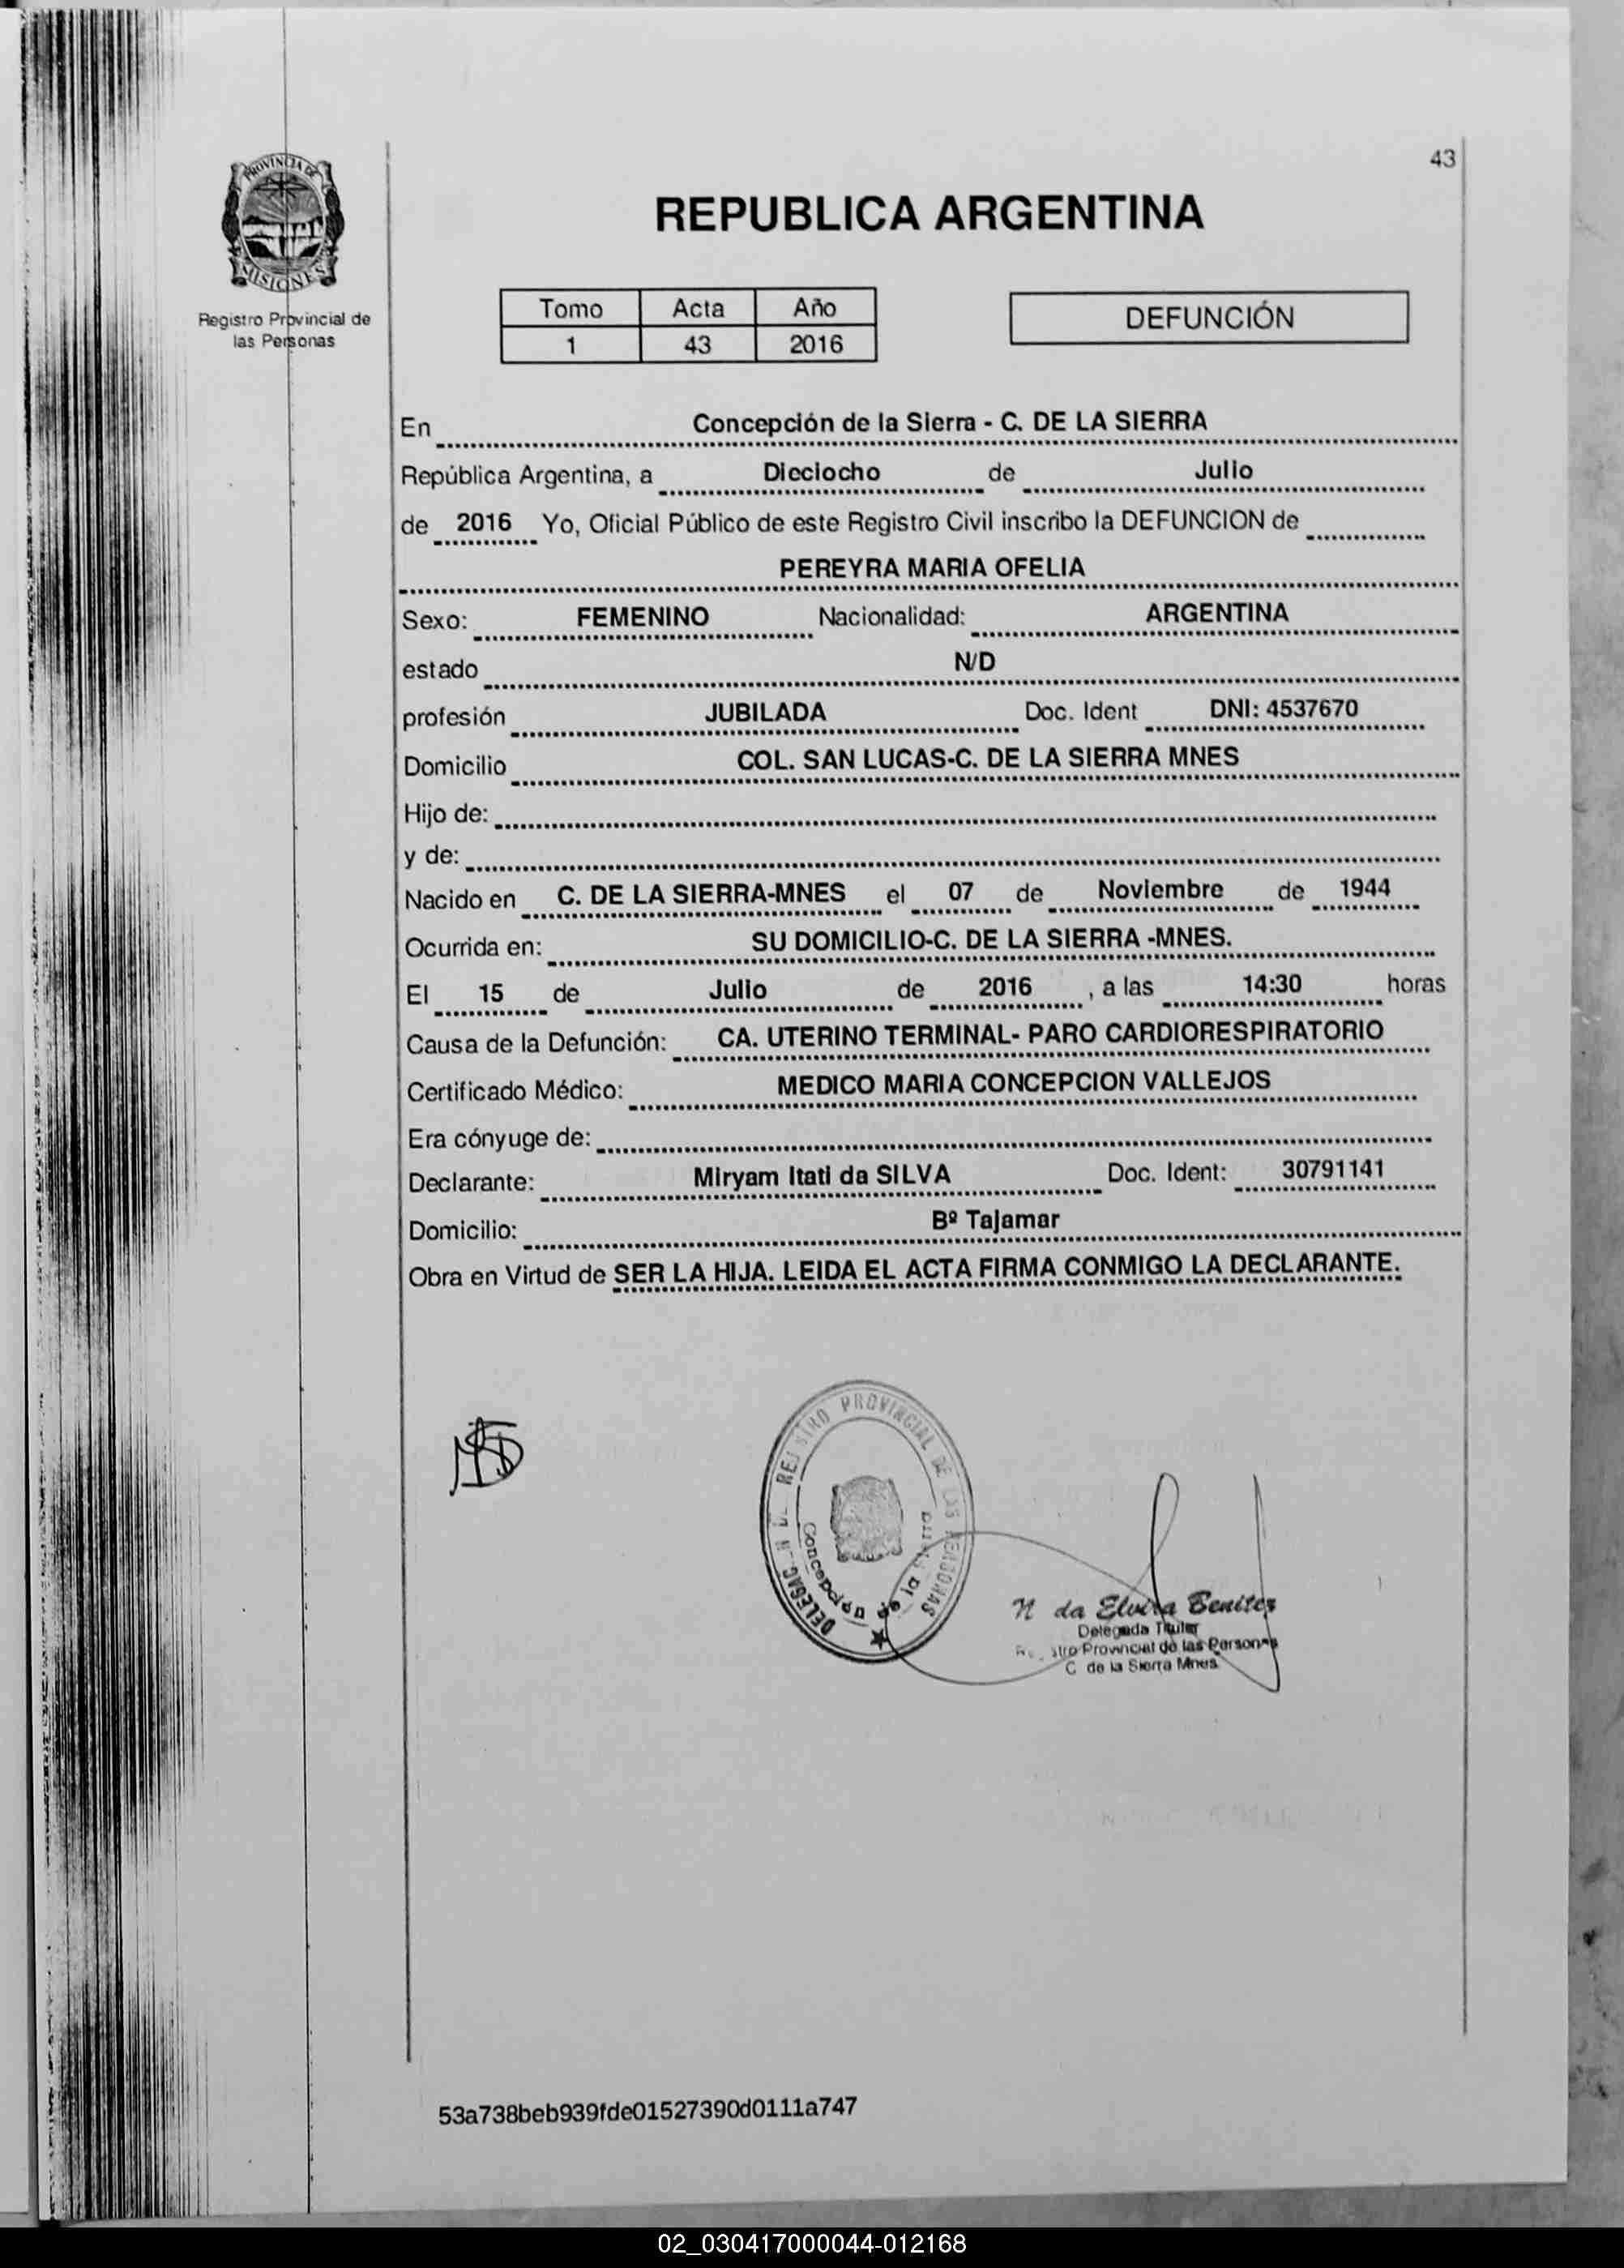 43
PROVINCIA DE
MISIONES
Registro Provincial de
las Personas
REPUBLICA ARGENTINA
Tomo Acta Año
1 43 2016
DEFUNCIÓN
En Concepción de la Sierra - C. DE LA SIERRA
República Argentina, a Dieciocho de Julio
de 2016 Yo, Oficial Público de este Registro Civil inscribo la DEFUNCION de
PEREYRA MARIA OFELIA
Sexo: FEMENINO Nacionalidad: ARGENTINA
estado N/D
profesión JUBILADA Doc. Ident DNI: 4537670
Domicilio COL. SAN LUCAS-C. DE LA SIERRA MNES
Hijo de:
y de:
Nacido en C. DE LA SIERRA-MNES el 07 de Noviembre de 1944
Ocurrida en: SU DOMICILIO-C. DE LA SIERRA -MNES.
El 15 de Julio de 2016 , a las 14:30 horas
Causa de la Defunción: CA. UTERINO TERMINAL- PARO CARDIORESPIRATORIO
Certificado Médico: MEDICO MARIA CONCEPCION VALLEJOS
Era cónyuge de:
Declarante: Miryam Itati da SILVA Doc. Ident: 30791141
Domicilio: Bº Tajamar
Obra en Virtud de SER LA HIJA. LEIDA EL ACTA FIRMA CONMIGO LA DECLARANTE.
PROVINCIAL DE LAS PERSONAS
Concepción de la Sierra
da Elvira Benitez
Delegada Titular
Provincial de las Personas
C de la Sierra Mnes
53a738beb939fde01527390d0111a747
02_030417000044-012168